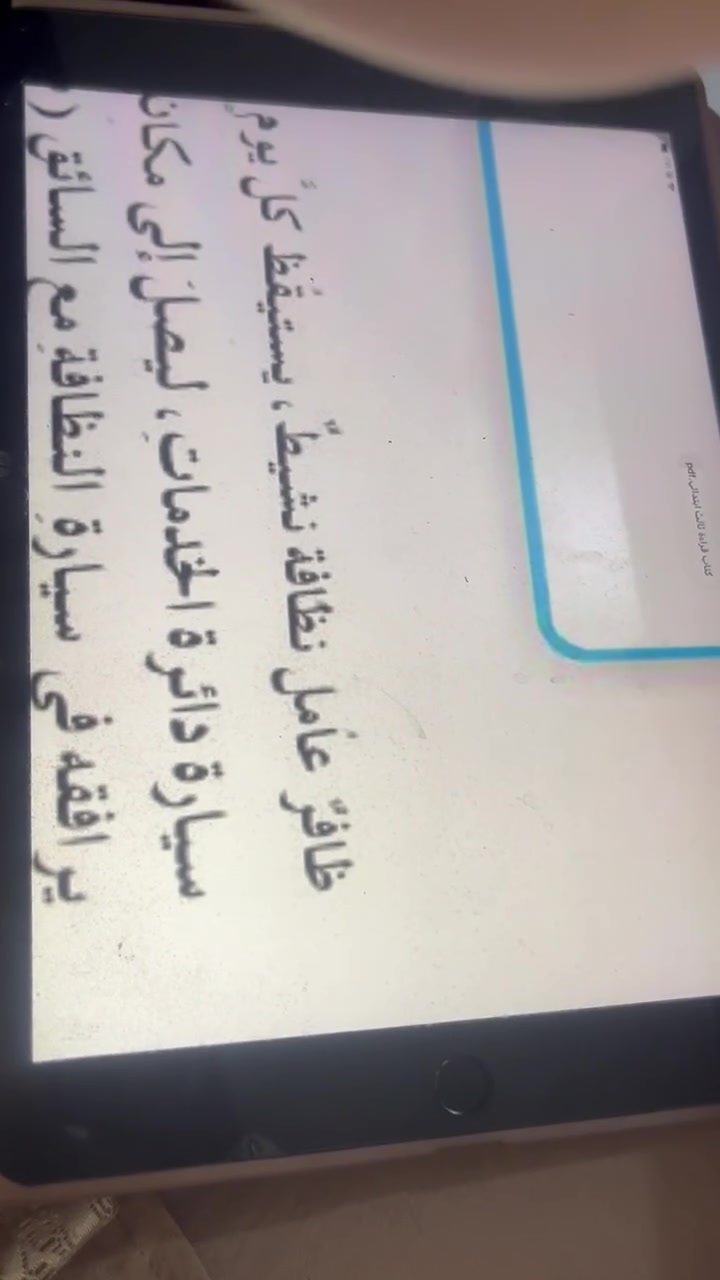 كتاب قراءة ثالث ابتدائي.pdf
ظافرٌ عامل نظافة نشيطٌ، يستيقظُ كلَّ يومٍ
سيارة دائرة الخدماتِ، ليصلَ إلى
يرافقه في سيارةِ النظافةِ مع السائق (